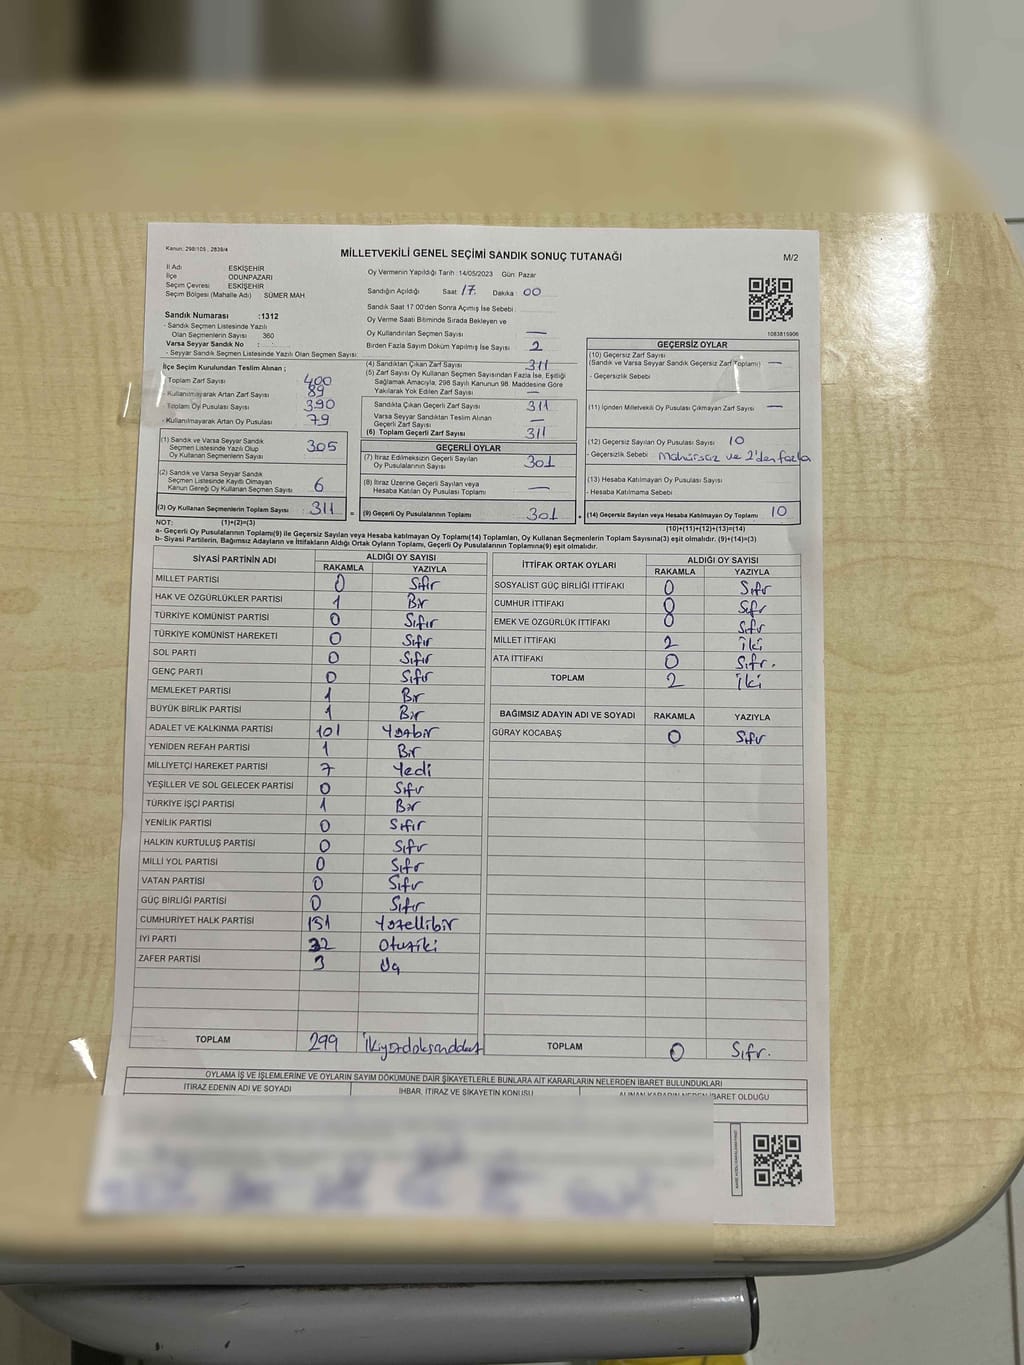 Kanun: 298/105 , 2839/4
MİLLETVEKİLİ GENEL SEÇİMİ SANDIK SONUÇ TUTANAĞI
M/2
İl Adı ESKİŞEHİR
İlçe ODUNPAZARI
Seçim Çevresi ESKİŞEHİR
Seçim Bölgesi (Mahalle Adı) SÜMER MAH
Oy Vermenin Yapıldığı Tarih : 14/05/2023 Gün: Pazar
Sandığın Açıldığı Saat: 17. Dakika : 00
Sandık Saat 17:00'den Sonra Açımış İse Sebebi :
Oy Verme Saati Bitiminde Sırada Bekleyen ve
Oy Kullandırılan Seçmen Sayısı —
Birden Fazla Sayım Döküm Yapılmış İse Sayısı 2
1083815906
Sandık Numarası :1312
- Sandık Seçmen Listesinde Yazılı
Olan Seçmenlerin Sayısı 360
Varsa Seyyar Sandık No :
- Seyyar Sandık Seçmen Listesinde Yazılı Olan Seçmen Sayısı:
İlçe Seçim Kurulundan Teslim Alınan ;
Toplam Zarf Sayısı 400
- Kullanılmayarak Artan Zarf Sayısı 89
Toplam Oy Pusulası Sayısı 390
- Kullanılmayarak Artan Oy Pusulası 79
(1) Sandık ve Varsa Seyyar Sandık
Seçmen Listesinde Yazılı Olup
Oy Kullanan Seçmenlerin Sayısı 305
(2) Sandık ve Varsa Seyyar Sandık
Seçmen Listesinde Kayıtlı Olmayan
Kanun Gereği Oy Kullanan Seçmen Sayısı 6
(3) Oy Kullanan Seçmenlerin Toplam Sayısı 311 =
(4) Sandıktan Çıkan Zarf Sayısı 311
(5) Zarf Sayısı Oy Kullanan Seçmen Sayısından Fazla İse, Eşitliği
Sağlamak Amacıyla, 298 Sayılı Kanunun 98. Maddesine Göre
Yakılarak Yok Edilen Zarf Sayısı —
Sandıkta Çıkan Geçerli Zarf Sayısı 311
Varsa Seyyar Sandıktan Teslim Alınan
Geçerli Zarf Sayısı —
(6) Toplam Geçerli Zarf Sayısı 311
GEÇERLİ OYLAR
(7) İtiraz Edilmeksizin Geçerli Sayılan
Oy Pusulalarının Sayısı 301
(8) İtiraz Üzerine Geçerli Sayılan veya
Hesaba Katılan Oy Pusulası Toplamı —
(9) Geçerli Oy Pusulalarının Toplamı 301 +
GEÇERSİZ OYLAR
(10) Geçersiz Zarf Sayısı
(Sandık ve Varsa Seyyar Sandık Geçersiz Zarf Toplamı) —
- Geçersizlik Sebebi
(11) İçinden Milletvekili Oy Pusulası Çıkmayan Zarf Sayısı —
(12) Geçersiz Sayılan Oy Pusulası Sayısı 10
- Geçersizlik Sebebi Mühürsüz ve 2'den fazla
(13) Hesaba Katılmayan Oy Pusulası Sayısı
- Hesaba Katılmama Sebebi
(14) Geçersiz Sayılan veya Hesaba Katılmayan Oy Toplamı 10
NOT: (1)+(2)=(3) (10)+(11)+(12)+(13)=(14)
a- Geçerli Oy Pusulalarının Toplamı(9) ile Geçersiz Sayılan veya Hesaba katılmayan Oy Toplamı(14) Toplamları, Oy Kullanan Seçmenlerin Toplam Sayısına(3) eşit olmalıdır. (9)+(14)=(3)
b- Siyasi Partilerin, Bağımsız Adayların ve İttifakların Aldığı Ortak Oyların Toplamı, Geçerli Oy Pusulalarının Toplamına(9) eşit olmalıdır.
SİYASİ PARTİNİN ADI ALDIĞI OY SAYISI
RAKAMLA YAZIYLA
MİLLET PARTİSİ 0 Sıfır
HAK VE ÖZGÜRLÜKLER PARTİSİ 1 Bir
TÜRKİYE KOMÜNİST PARTİSİ 0 Sıfır
TÜRKİYE KOMÜNİST HAREKETİ 0 Sıfır
SOL PARTİ 0 Sıfır
GENÇ PARTİ 0 Sıfır
MEMLEKET PARTİSİ 1 Bir
BÜYÜK BİRLİK PARTİSİ 1 Bir
ADALET VE KALKINMA PARTİSİ 101 Yüzbir
YENİDEN REFAH PARTİSİ 1 Bir
MİLLİYETÇİ HAREKET PARTİSİ 7 Yedi
YEŞİLLER VE SOL GELECEK PARTİSİ 0 Sıfır
TÜRKİYE İŞÇİ PARTİSİ 1 Bir
YENİLİK PARTİSİ 0 Sıfır
HALKIN KURTULUŞ PARTİSİ 0 Sıfır
MİLLİ YOL PARTİSİ 0 Sıfır
VATAN PARTİSİ 0 Sıfır
GÜÇ BİRLİĞİ PARTİSİ 0 Sıfır
CUMHURİYET HALK PARTİSİ 151 Yüzellibir
İYİ PARTİ 32 Otuziki
ZAFER PARTİSİ 3 Üç
TOPLAM 299 İkiyüzdoksandokuz
İTTİFAK ORTAK OYLARI ALDIĞI OY SAYISI
RAKAMLA YAZIYLA
SOSYALİST GÜÇ BİRLİĞİ İTTİFAKI 0 Sıfır
CUMHUR İTTİFAKI 0 Sıfır
EMEK VE ÖZGÜRLÜK İTTİFAKI 0 Sıfır
MİLLET İTTİFAKI 2 İki
ATA İTTİFAKI 0 Sıfır.
TOPLAM 2 İki
BAĞIMSIZ ADAYIN ADI VE SOYADI RAKAMLA YAZIYLA
GÜRAY KOCABAŞ 0 Sıfır
TOPLAM 0 Sıfır.
OYLAMA İŞ VE İŞLEMLERİNE VE OYLARIN SAYIM DÖKÜMÜNE DAİR ŞİKAYETLERLE BUNLARA AİT KARARLARIN NELERDEN İBARET BULUNDUKLARI
İTİRAZ EDENİN ADI VE SOYADI İHBAR, İTİRAZ VE ŞİKAYETİN KONUSU ALINAN KARARIN NEDEN İBARET OLDUĞU